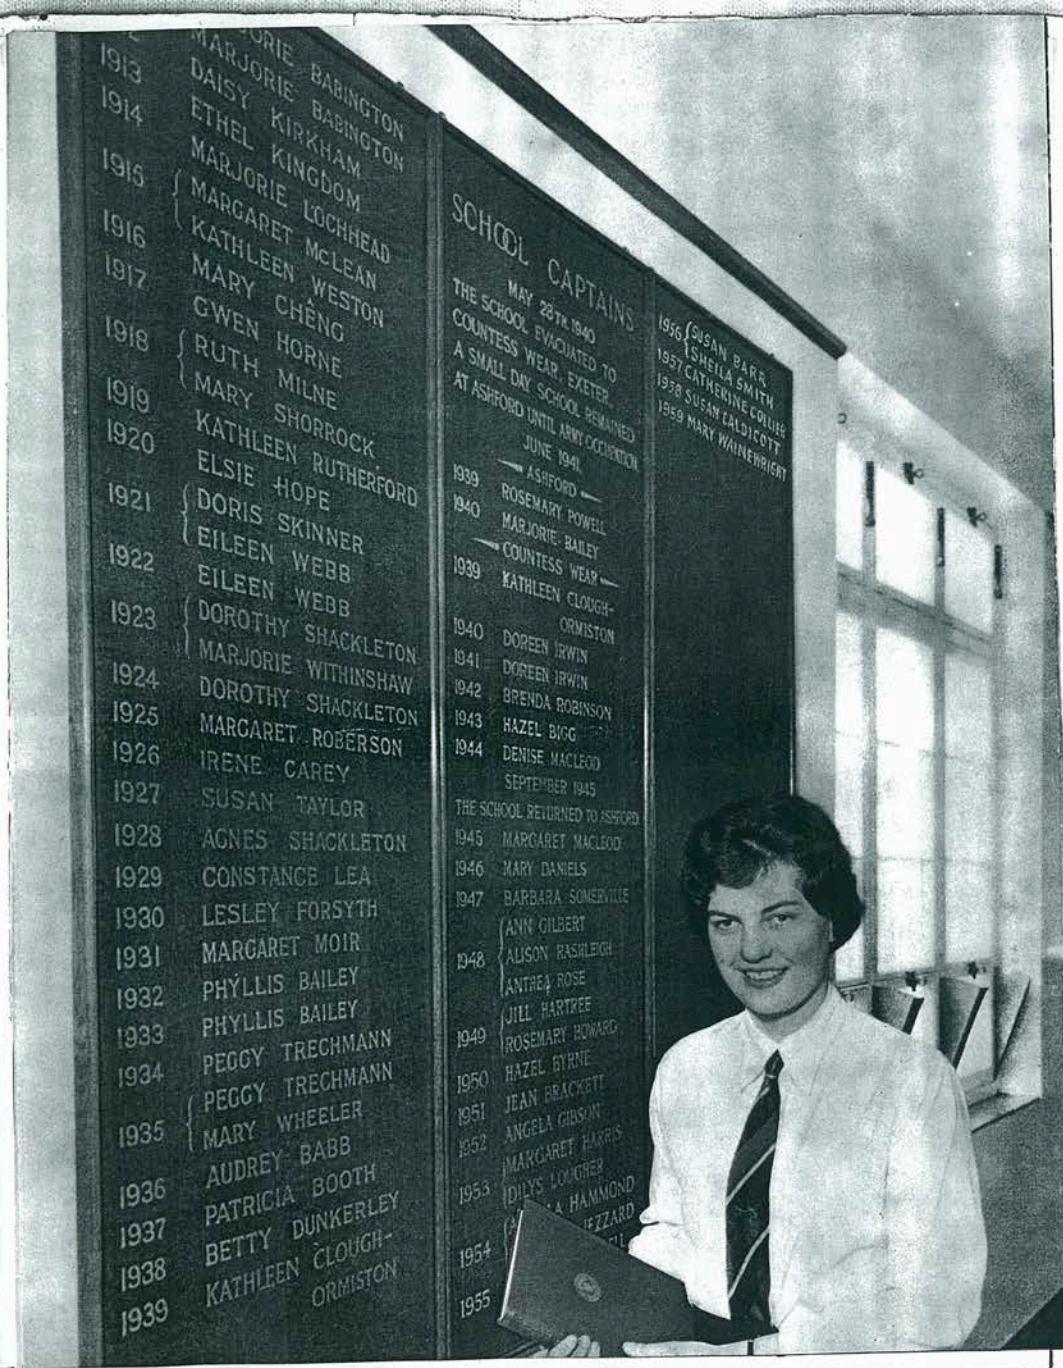 ORIE BABINGTON
MARJORIE BABINGTON
1913 DAISY KIRKHAM
1914 ETHEL KINGDOM
MARJORIE LOCHHEAD
1915 MARGARET McLEAN
KATHLEEN WESTON
1916 MARY CHÊNG
1917 GWEN HORNE
1918 RUTH MILNE
MARY SHORROCK
1919 KATHLEEN RUTHERFORD
1920 ELSIE HOPE
1921 DORIS SKINNER
EILEEN WEBB
1922 EILEEN WEBB
1923 DOROTHY SHACKLETON
MARJORIE WITHINSHAW
1924 DOROTHY SHACKLETON
1925 MARGARET ROBERSON
1926 IRENE CAREY
1927 SUSAN TAYLOR
1928 AGNES SHACKLETON
1929 CONSTANCE LEA
1930 LESLEY FORSYTH
1931 MARGARET MOIR
1932 PHYLLIS BAILEY
1933 PHYLLIS BAILEY
1934 PEGGY TRECHMANN
1935 PEGGY TRECHMANN
MARY WHEELER
1936 AUDREY BABB
1937 PATRICIA BOOTH
1938 BETTY DUNKERLEY
1939 KATHLEEN CLOUGH-
ORMISTON
SCHOOL CAPTAINS
MAY 28TH. 1940
THE SCHOOL EVACUATED TO
COUNTESS WEAR, EXETER.
A SMALL DAY SCHOOL REMAINED
AT ASHFORD UNTIL ARMY OCCUPATION
JUNE 1941.
ASHFORD
1939 ROSEMARY POWELL
1940 MARJORIE BAILEY
COUNTESS WEAR
1939 KATHLEEN CLOUGH-
ORMISTON
1940 DOREEN IRWIN
1941 DOREEN IRWIN
1942 BRENDA ROBINSON
1943 HAZEL BIGG
1944 DENISE MACLEOD
SEPTEMBER 1945
THE SCHOOL RETURNED TO ASHFORD.
1945 MARGARET MACLEOD
1946 MARY DANIELS
1947 BARBARA SOMERVILLE
ANN GILBERT
1948 ALISON RASHLEIGH
ANTHEA ROSE
JILL HARTREE
1949 ROSEMARY HOWARD
1950 HAZEL BYRNE
1951 JEAN BRACKETT
1952 ANGELA GIBSON
MARGARET HARRIS
1953 DILYS LOUGHER
A HAMMOND
1954 EZZARD
1955
1956 SUSAN BARR
SHEILA SMITH
1957 CATHERINE COLLIER
1958 SUSAN CALDICOTT
1959 MARY WAINEWRIGHT